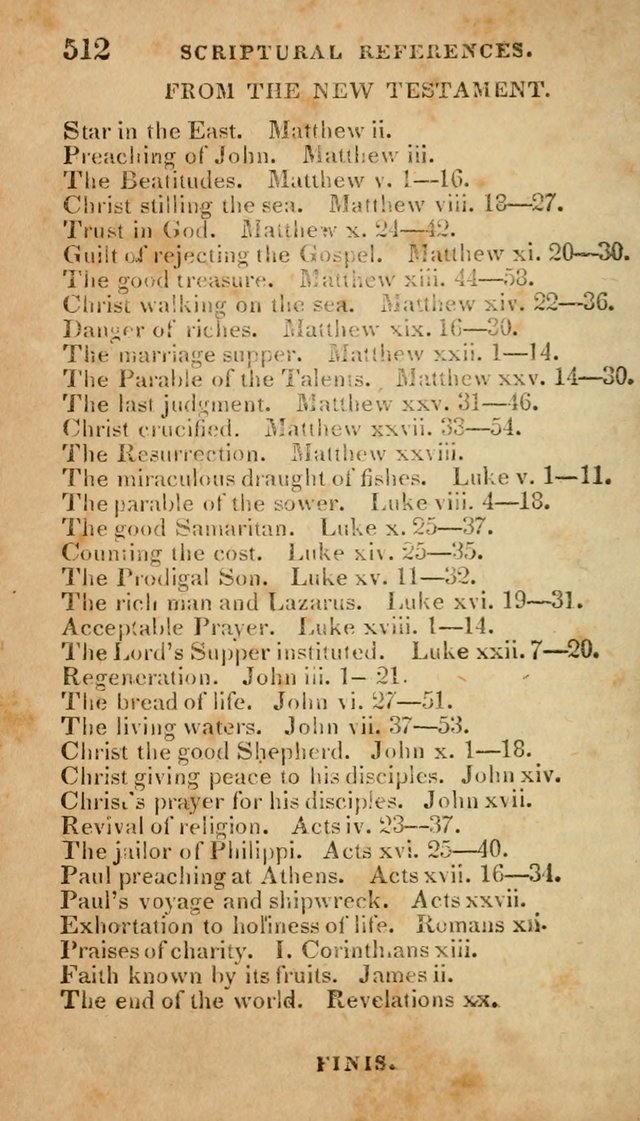 512 SCRIPTURAL REFERENCES.
FROM THE NEW TESTAMENT.
Star in the East. Matthew ii.
Preaching of John. Matthew iii.
The Beatitudes. Matthew v. 1—16.
Christ stilling the sea. Matthew viii. 18—27.
Trust in God. Matthew x. 24—42.
Guilt of rejecting the Gospel. Matthew xi. 20—30.
The good treasure. Matthew xiii. 44—58.
Christ walking on the sea. Matthew xiv. 22—36.
Danger of riches. Matthew xix. 16—30.
The marriage supper. Matthew xxii. 1—14.
The Parable of the Talents. Matthew xxv. 14—30.
The last judgment. Matthew xxv. 31—46.
Christ crucified. Matthew xxvii. 33—54.
The Resurrection. Matthew xxviii.
The miraculous draught of fishes. Luke v. 1—11.
The parable of the sower. Luke viii. 4—18.
The good Samaritan. Luke x. 25—37.
Counting the cost. Luke xiv. 25—35.
The Prodigal Son. Luke xv. 11—32.
The rich man and Lazarus. Luke xvi. 19—31.
Acceptable Prayer. Luke xviii. 1—14.
The Lord's Supper instituted. Luke xxii. 7—20.
Regeneration. John iii. 1—21.
The bread of life. John vi. 27—51.
The living waters. John vii. 37—53.
Christ the good Shepherd. John x. 1—18.
Christ giving peace to his disciples. John xiv.
Christ's prayer for his disciples. John xvii.
Revival of religion. Acts iv. 23—37.
The jailor of Philippi. Acts xvi. 25—40.
Paul preaching at Athens. Acts xvii. 16—34.
Paul's voyage and shipwreck. Acts xxvii.
Exhortation to holiness of life. Romans xii.
Praises of charity. I. Corinthians xiii.
Faith known by its fruits. James ii.
The end of the world. Revelations xx.
FINIS.